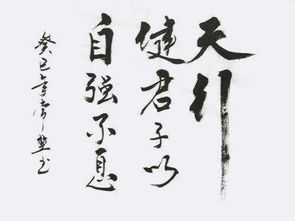 天行
健君子以
自强不息
癸巳

书